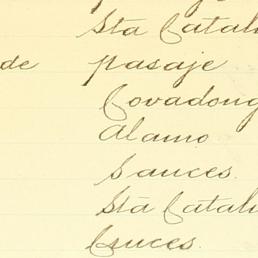 Sta Catali
de pasaje
Covadong
Alamo
Sauces.
Sta Catali
Cruces.